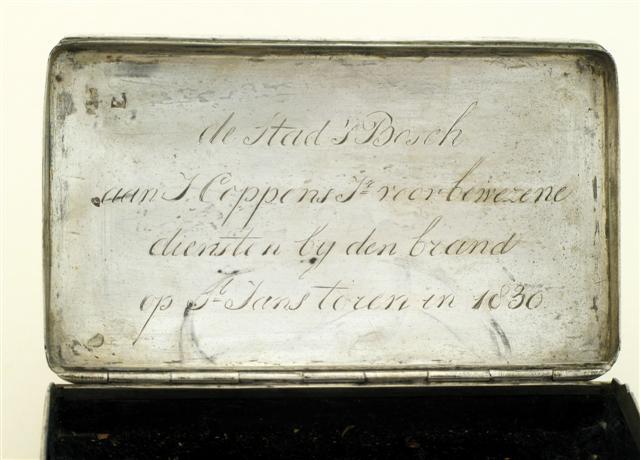 de Stad 's Bosch
aan J. Coppens Jr. voor bewezene
diensten by den brand
op St. Jans toren in 1830